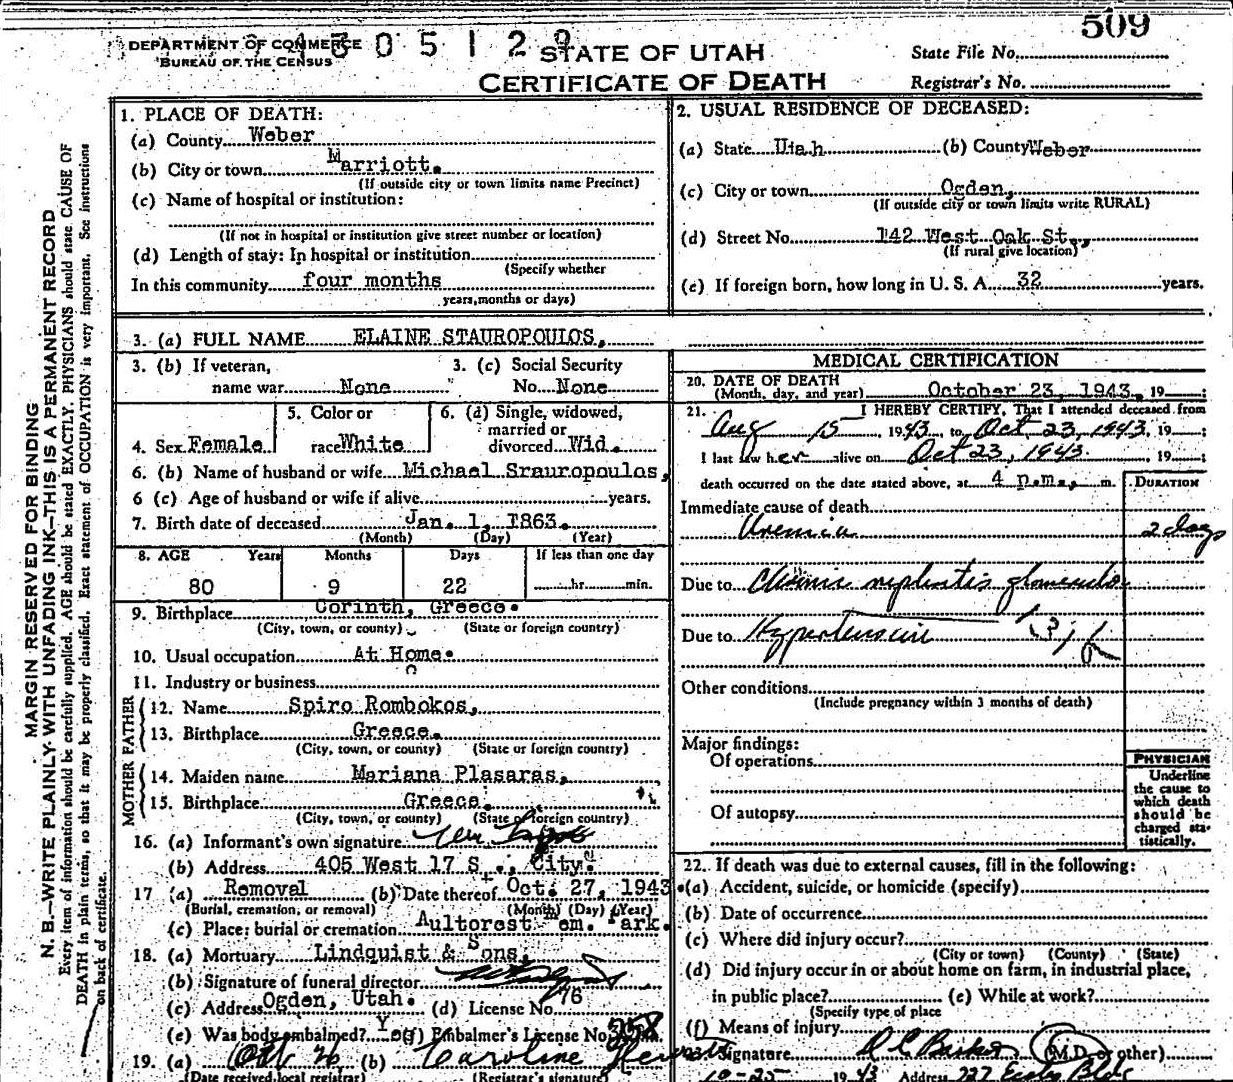 509
DEPARTMENT OF COMMERCE
BUREAU OF THE CENSUS
4305129
STATE OF UTAH
CERTIFICATE OF DEATH
State File No.
Registrar's No.
MARGIN RESERVED FOR BINDING
N. B.—WRITE PLAINLY WITH UNFADING INK—THIS IS A PERMANENT RECORD
Every item of information should be carefully supplied. AGE should be stated EXACTLY. PHYSICIANS should state CAUSE OF
DEATH in plain terms, so that it may be properly classified. Exact statement of OCCUPATION is very important. See instructions
on back of certificate.
1. PLACE OF DEATH:
(a) County Weber
(b) City or town Marriott.
(If outside city or town limits name Precinct)
(c) Name of hospital or institution:
(If not in hospital or institution give street number or location)
(d) Length of stay: In hospital or institution
(Specify whether
In this community four months
years, months or days)
2. USUAL RESIDENCE OF DECEASED:
(a) State Utah (b) County Weber
(c) City or town Ogden,
(If outside city or town limits write RURAL)
(d) Street No. 142 West Oak St.,
(If rural give location)
(e) If foreign born, how long in U. S. A. 32 years.
3. (a) FULL NAME ELAINE STAUROPOULOS,
3. (b) If veteran, name war None
3. (c) Social Security No. None
4. Sex Female
5. Color or race White
6. (a) Single, widowed, married or divorced Wid.
6. (b) Name of husband or wife Michael Srauropoulos,
6 (c) Age of husband or wife if alive years.
7. Birth date of deceased Jan. 1, 1863.
(Month) (Day) (Year)
8. AGE Years Months Days If less than one day
80 9 22 hr. min.
9. Birthplace Corinth, Greece.
(City, town, or county) (State or foreign country)
10. Usual occupation At Home.
11. Industry or business
FATHER
12. Name Spiro Rombokos,
13. Birthplace Greece.
(City, town, or county) (State or foreign country)
MOTHER
14. Maiden name Mariana Plasaras,
15. Birthplace Greece.
(City, town, or county) (State or foreign country)
16. (a) Informant's own signature
(b) Address 405 West 17 St., City.
17 (a) Removal (b) Date thereof Oct. 27, 1943.
(Burial, cremation, or removal) (Month) (Day) (Year)
(c) Place: burial or cremation Aultorest Mem. Park.
18. (a) Mortuary Lindquist & Sons,
(b) Signature of funeral director
(c) Address Ogden, Utah. (d) License No. 76
(e) Was body embalmed? Yes (f) Embalmer's License No. 358
19. (a) Oct 26 (b) Caroline
(Date received local registrar) (Registrar's signature)
MEDICAL CERTIFICATION
20. DATE OF DEATH
(Month, day, and year) October 23, 1943, 19 ;
21. I HEREBY CERTIFY, That I attended deceased from
Aug 15, 1943, to Oct 23, 1943, 19 ;
I last saw her alive on Oct 23, 1943 19 ;
death occurred on the date stated above, at 4 p.m., m.
DURATION
Immediate cause of death
Uremia 2 days
Due to Chronic nephritis glomerular
Due to Hypertension
Other conditions
(Include pregnancy within 3 months of death)
Major findings:
Of operations
Of autopsy
PHYSICIAN
Underline
the cause to
which death
should be
charged sta-
tistically.
22. If death was due to external causes, fill in the following:
(a) Accident, suicide, or homicide (specify)
(b) Date of occurrence
(c) Where did injury occur?
(City or town) (County) (State)
(d) Did injury occur in or about home on farm, in industrial place,
in public place? (e) While at work?
(Specify type of place
(f) Means of injury
23. Signature (M.D. or other)
10-25 1943 Address 727 Eccles Bldg